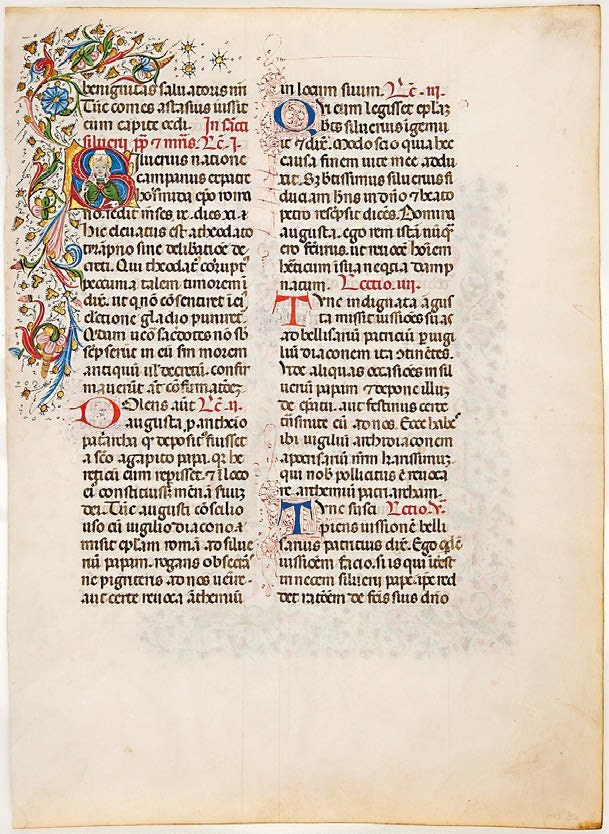 benignitas salvatoris nri
Tuc comes astasius iussit
eum capite cedi. In sacti
silverij pp et mris. Lc. I.
Silverius natione
campanus ex patre
hormisda epo roma
no. sedit mses ix. dies xi. et
hic elevatus est a theodato
tyrapno sine delibatioe de
creti. Qui theodat corrupt
peccunia talem timorem i
dix. ut q no cosentiret i ei
electione gladio puniret.
Qdam vero sacdotes no sb
scpserut in eu sm morem
antiquu ul decretu. confir
mauerut at cofirmatoez
Dolens aut Lc. ii.
augusta p antheio
patarcha q deposit fuisset
a sco agapito papa. qr he
reticu eum repisset. et i loco
ei constituiss menam seruuz
dei. Tuc augusti cosilio
uso cu uigilio diacono et
misit eplam roma ad silue
riu papam. rogans obsecras
ne pigriteris ad nos uenire.
aut certe reuoca athemiuz
in locum suum. Lc. iii.
Qui cum legisset eplaz
btus siluerius igemu
it et dix. Modo scio quia hec
causa finem uite mee addu
xit. Sz btissimus siluerius fi
duciam hns in dno et beato
petro rescpsit dices. Domina
augusta. ego rem ista nuq
ero facturus. ut reuoce hoiem
heticum i sua neqtia damp
natum. Lectio. iiii.
Tunc indignata agus
ta missit iussioes suas
ad bellisariu patriciu p uigi
liu diaconem ita otinetes.
Vide aliquas occasioes in sil
uerium papam et depone illuz
de epatu. aut festinus certe
trasmite eu ad nos. Ecce habes
ibi uigiliu archidiaconem
apocrisariu nrm karissimuz.
qui nob pollicitus e reuoca
re. anthemiu patriarcham.
Tunc suscs Lectio. V.
piens iussione belli
sarius patricius dix. Ego qde
iussioem facio. si is qui itest
in necem siluerii pape. ipe red
det ratoem de fcis suis dno